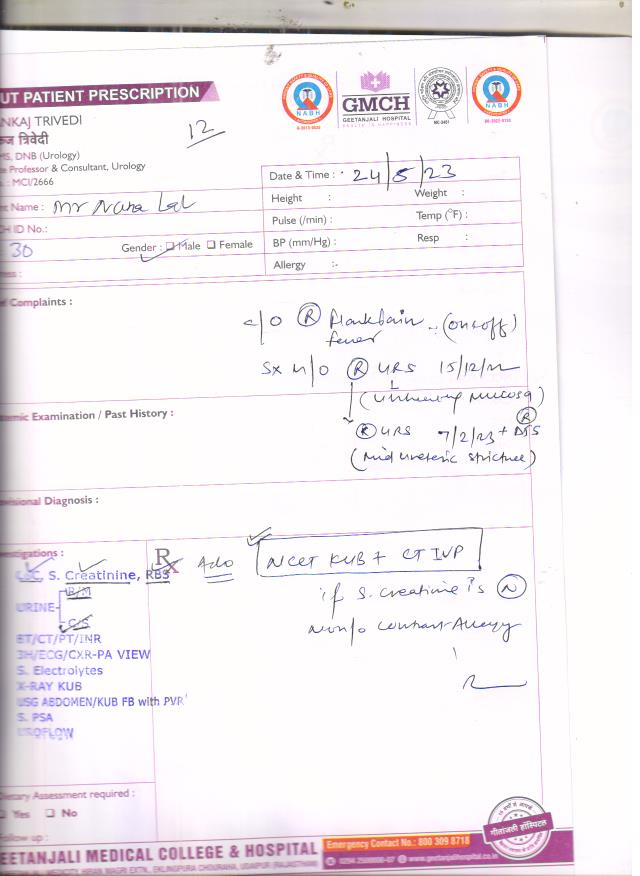 UT PATIENT PRESCRIPTION
NKAJ TRIVEDI
ज त्रिवेदी
MS, DNB (Urology)
te Professor & Consultant, Urology
. : MCI/2666
12
NABH
GMCH
GEETANJALI HOSPITAL
NABH
Date & Time : 24/5/23
Height :
Weight :
Pulse (/min) :
Temp (°F) :
BP (mm/Hg) :
Resp :
Allergy :-
nt Name : Mr Nana Lal
CH ID No.:
30
Gender : Male Female
ress :
f Complaints :
c/o (R) Flank pain (on & off)
fever
Sx H/O (R) URS 15/12/22
(Unhealthy Mucosa)
(R) URS 7/2/23 + (R) DJS
(Mid ureteric stricture)
temic Examination / Past History :
visional Diagnosis :
estigations :
CBC, S. Creatinine, RBS
URINE
R/M
C/S
BT/CT/PT/INR
3H/ECG/CXR-PA VIEW
S. Electrolytes
X-RAY KUB
USG ABDOMEN/KUB FB with PVR
S. PSA
UROFLOW
Rx Adv NCCT KUB + CT IVP
if S. creatinine is (N)
No h/o Contrast Allergy
Dietary Assessment required :
Yes No
Follow up :
गीतांजली हॉस्पिटल
EETANJALI MEDICAL COLLEGE & HOSPITAL
Emergency Contact No.: 800 309 8718
0294 2500000-07 www.geetanjalihospital.co.in
MEDICITY, HIRAN MAGRI EXTN., EKLINGPURA CHOURAHA, UDAIPUR (RAJASTHAN)